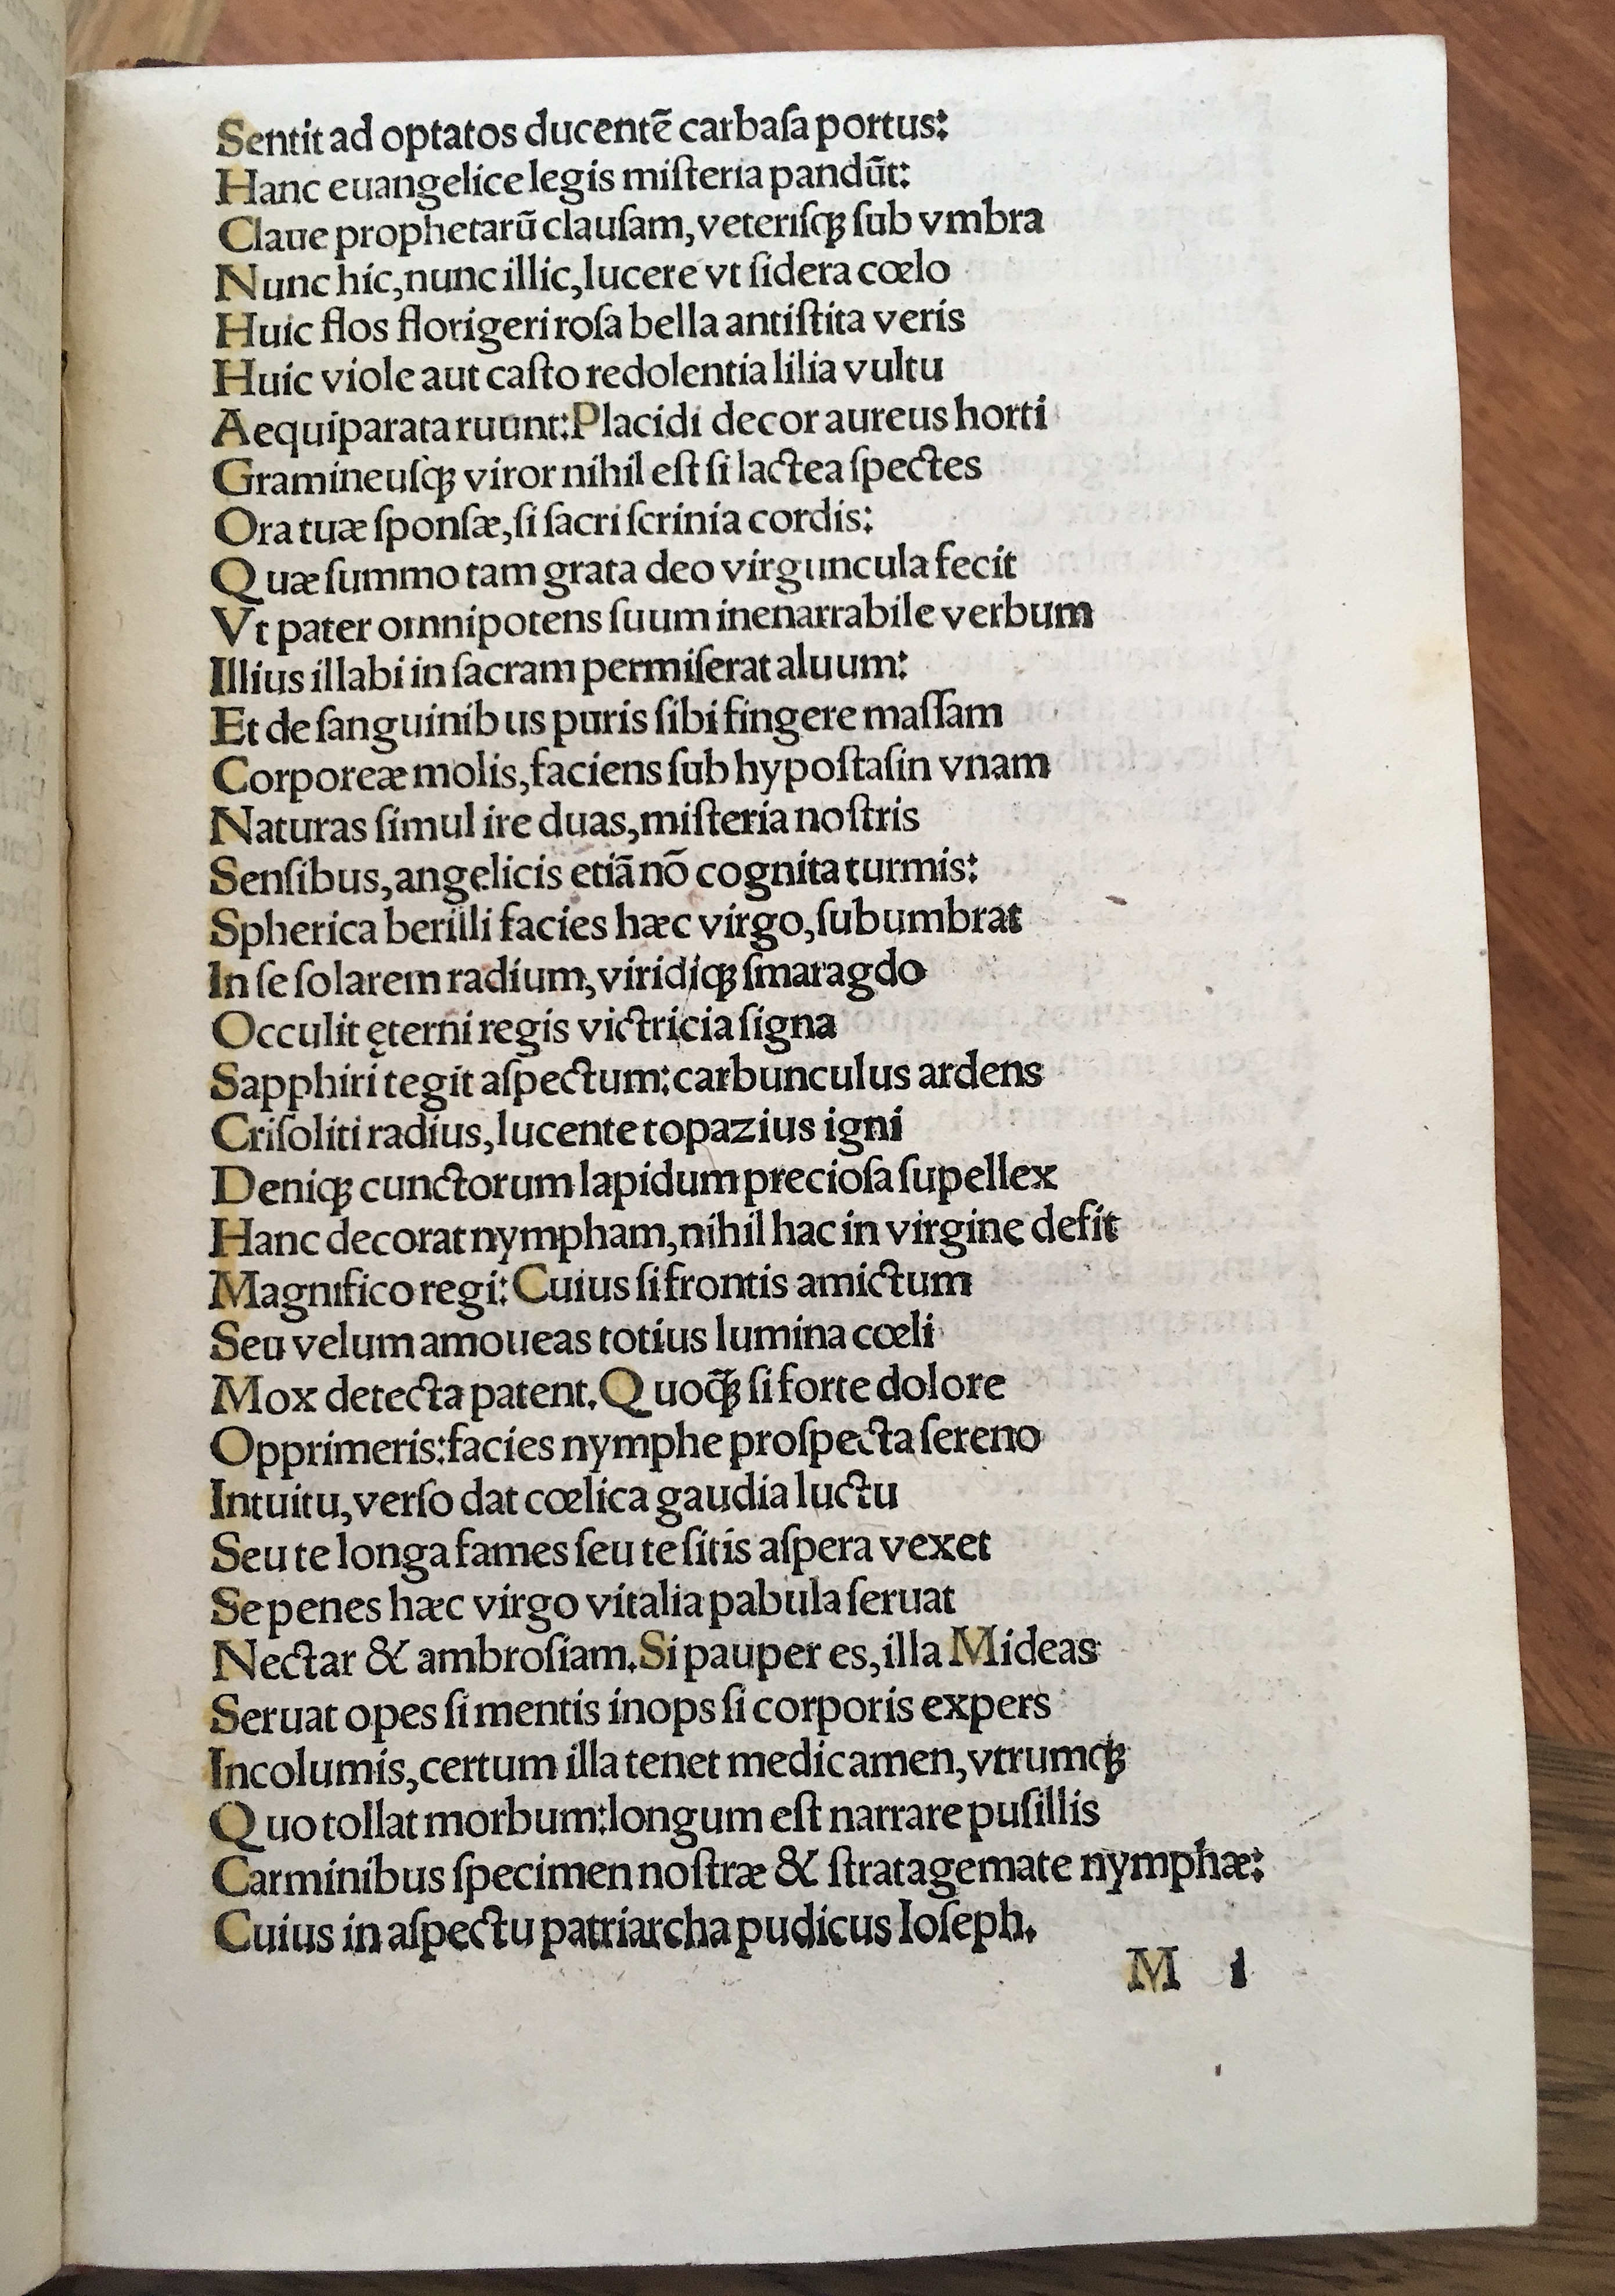 Sentit ad optatos ducentē carbaſa portus:
Hanc euangelice legis miſteria pandūt:
Claue prophetarū clauſam, veteriſqꝫ ſub vmbra
Nunc hic, nunc illic, lucere vt ſidera cœlo
Huic flos florigeri roſa bella antiſtita veris
Huic viole aut caſto redolentia lilia vultu
Aequiparata ruunt: Placidi decor aureus horti
Gramineuſqꝫ viror nihil eſt ſi lactea ſpectes
Ora tuæ ſponſæ, ſi ſacri ſcrinia cordis:
Quæ ſummo tam grata deo virguncula fecit
Vt pater omnipotens ſuum inenarrabile verbum
Illius illabi in ſacram permiſerat aluum:
Et de ſanguinibus puris ſibi fingere maſſam
Corporeæ molis, faciens ſub hypoſtaſin vnam
Naturas ſimul ire duas, miſteria noſtris
Senſibus, angelicis etiā nō cognita turmis:
Spherica berilli facies hæc virgo, ſubumbrat
In ſe ſolarem radium, viridiqꝫ ſmaragdo
Occulit ęterni regis victricia ſigna
Sapphiri tegit aſpectum: carbunculus ardens
Criſoliti radius, lucente topazius igni
Deniqꝫ cunctorum lapidum precioſa ſupellex
Hanc decorat nympham, nihil hac in virgine defit
Magnifico regi: Cuius ſi frontis amictum
Seu velum amoueas totius lumina cœli
Mox detecta patent. Quoq̄ꝫ ſi forte dolore
Opprimeris: facies nymphe proſpecta ſereno
Intuitu, verſo dat cœlica gaudia luctu
Seu te longa fames ſeu te ſitis aſpera vexet
Se penes hæc virgo vitalia pabula ſeruat
Nectar & ambroſiam. Si pauper es, illa Mideas
Seruat opes ſi mentis inops ſi corporis expers
Incolumis, certum illa tenet medicamen, vtrumqꝫ
Quo tollat morbum: longum eſt narrare puſillis
Carminibus ſpecimen noſtræ & ſtratagemate nymphæ:
Cuius in aſpectu patriarcha pudicus Ioſeph.
M 1